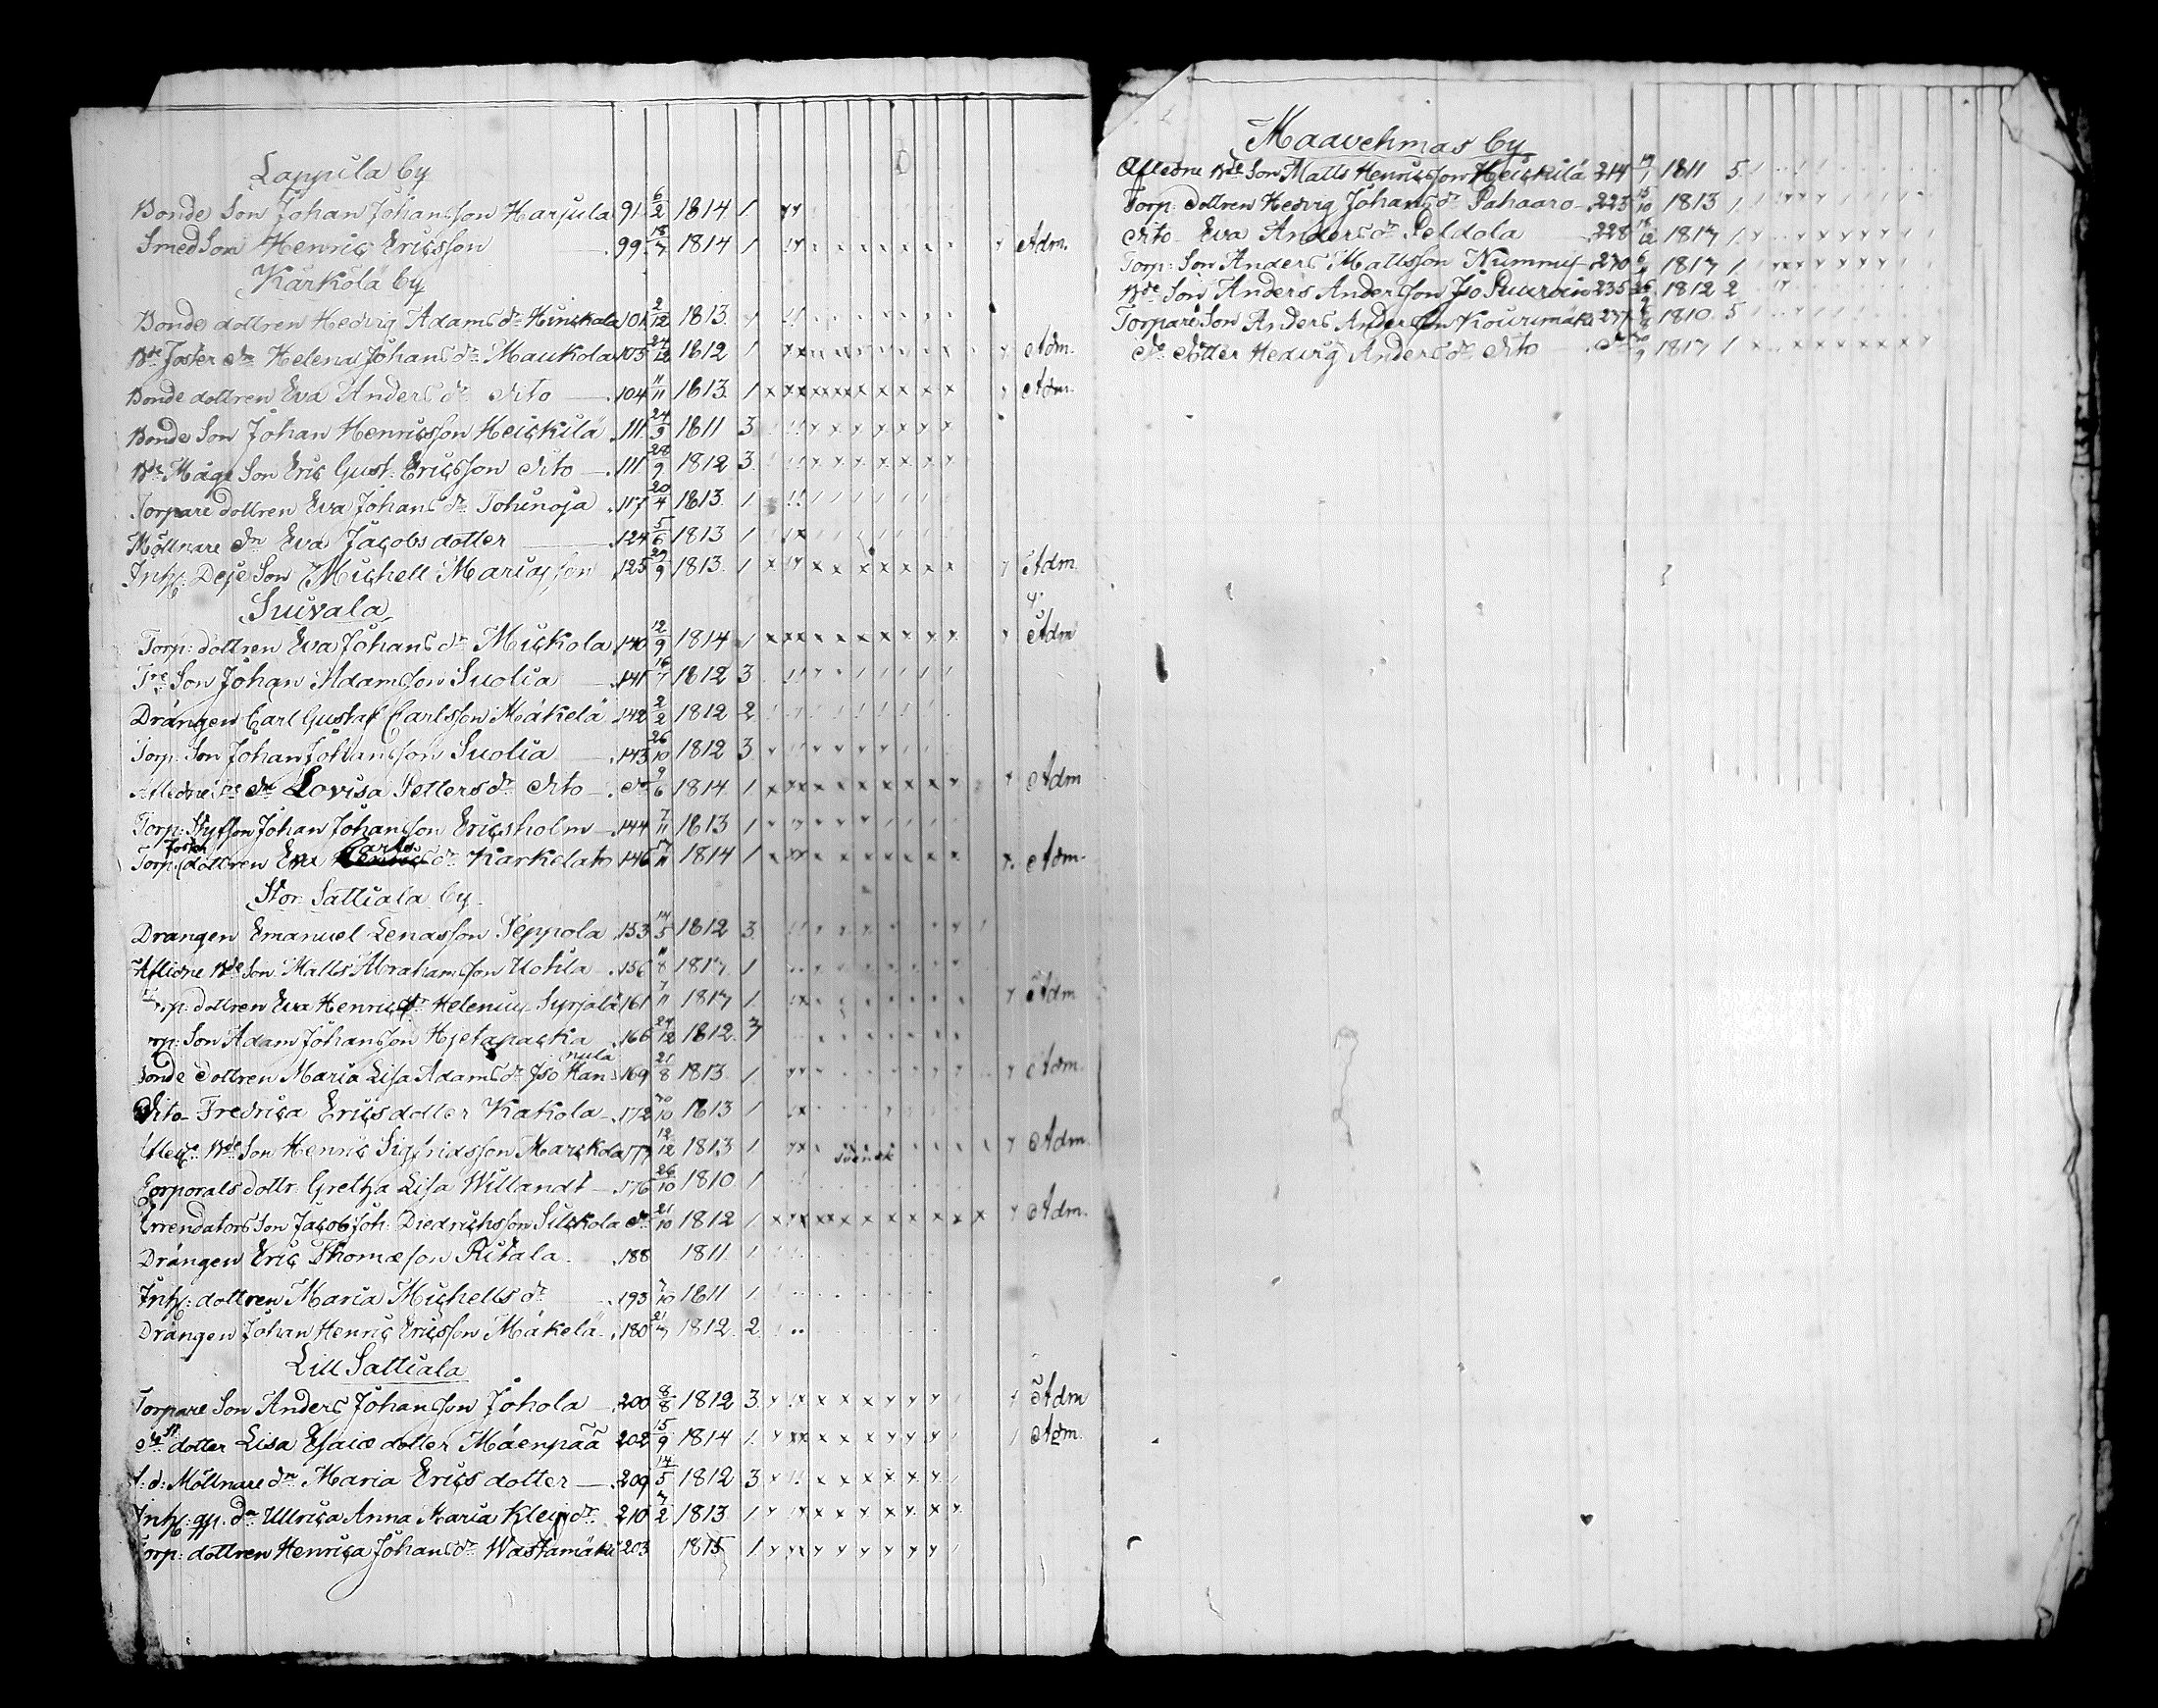 Lappila by
Bonde Son Johan Johansson Harjula 91 6/2 1814 1
Smed Son Henric Ericsson 99 18/7 1814 1 Adm.
Kärkölä by
Bonde dottren Hedvig Adams dr Hinckala 101 2/12 1813 1
Bde Foster dr Helena Johans dr Maukola 103 24/12 1812 1 Adm.
Bonde dottren Eva Anders dr Dito 104 11/11 1813 1 Adm.
Bonde Son Johan Henricsson Heickilä 111 24/9 1811 3
Bde Måg Son Eric Gust: Ericsson Dito 111 28/9 1812 3
Torpare dottren Eva Johans dr Tohinoja 117 20/4 1813 1
Möllnare dr Eva Jacobs dotter 124 5/6 1813 1
Inh: Deje Son Michell Mariæ son 125 29/9 1813 1 Adm.
Suvala
Torp: dottren Eva Johans dr Mickola 140 12/9 1814 1 Adm
Tre Son Johan Adamsson Suolia 141 16/7 1812 3
Drängen Carl Gustaf Carlsson Mäkelä 142 2/2 1812 2
Torp: Son Johan Johansson Suolia 143 26/10 1812 3
Aflidne dr Lovisa Petters dr Dito do 9/6 1814 1 Adm
Torp: Styfson Johan Johansson Ericsholm 144 7/11 1813 1
Torp: Foster dottren Eva Carls dr Kärkelato 146 /11 1814 1 Adm.
Stor Sattiala by
Drängen Emanuel Lenasson Peppola 153 14/5 1812 3
Aflidne Bde Son Matts Abrahamsson Uotila 156 11/8 1817 1
Torp: dottren Eva Henrics dr Helenius Syrjälä 161 7/11 1817 1 Adm
Torp: Son Adam Johansson Hjetapacka 166 27/12 1812 3
Bonde dottren Maria Lisa Adams dr Iso Han nula 169 21/8 1813 1 Adm.
Dito Fredrica Erics dotter Kakola 172 /10 1813 1
Aflec: Bde Son Henric Sigfridsson Marckola 177 12/12 1813 1 Adm.
svensk
Corporals dottr. Gretha Lisa Willandt 176 26/10 1810 1
Arrendators Son Jacob Joh: Diedrichsson Silckola do 21/10 1812 1 Adm.
Drängen Eric Thomæson Ritala 188 1811 1
Inh: dottren Maria Michells dr 193 7/10 1811 1
Drängen Johan Henric Ericsson Mäkelä 180 21/ 1812 2
Lill Sattiala
Torpare Son Anders Johansson Johola 200 8/8 1812 3 Adm
dotter Lisa Esaiæ dotter Mäenpää 202 15/9 1814 1 Adm.
f: d: Möllnare dr Maria Erics dotter 209 14/5 1812 3
Inh: qp. dr Ullrica Anna Maria Klein dr 210 7/2 1813 1
Torp: dottren Henrica Johans dr Wästamäki 203 1815 1
Maavehmas by
Afledne Bde Son Matts Henricsson Heickilä 214 19/1 1811 5
Torp: dottren Hedvig Johans dr Pahaaro 223 15/10 1813 1
Dito Eva Anders dr Peldola 228 /12 1817 1
Torp: Son Anders Mattsson Nummi 230 6/ 1817 1
Bde Son Anders Andersson Iso Puuroin 235 1812 2
Torpare Son Anders Andersson Kourimäki 237 1810 5
Do Dotter Hedvig Anders dr Dito do 1817 1